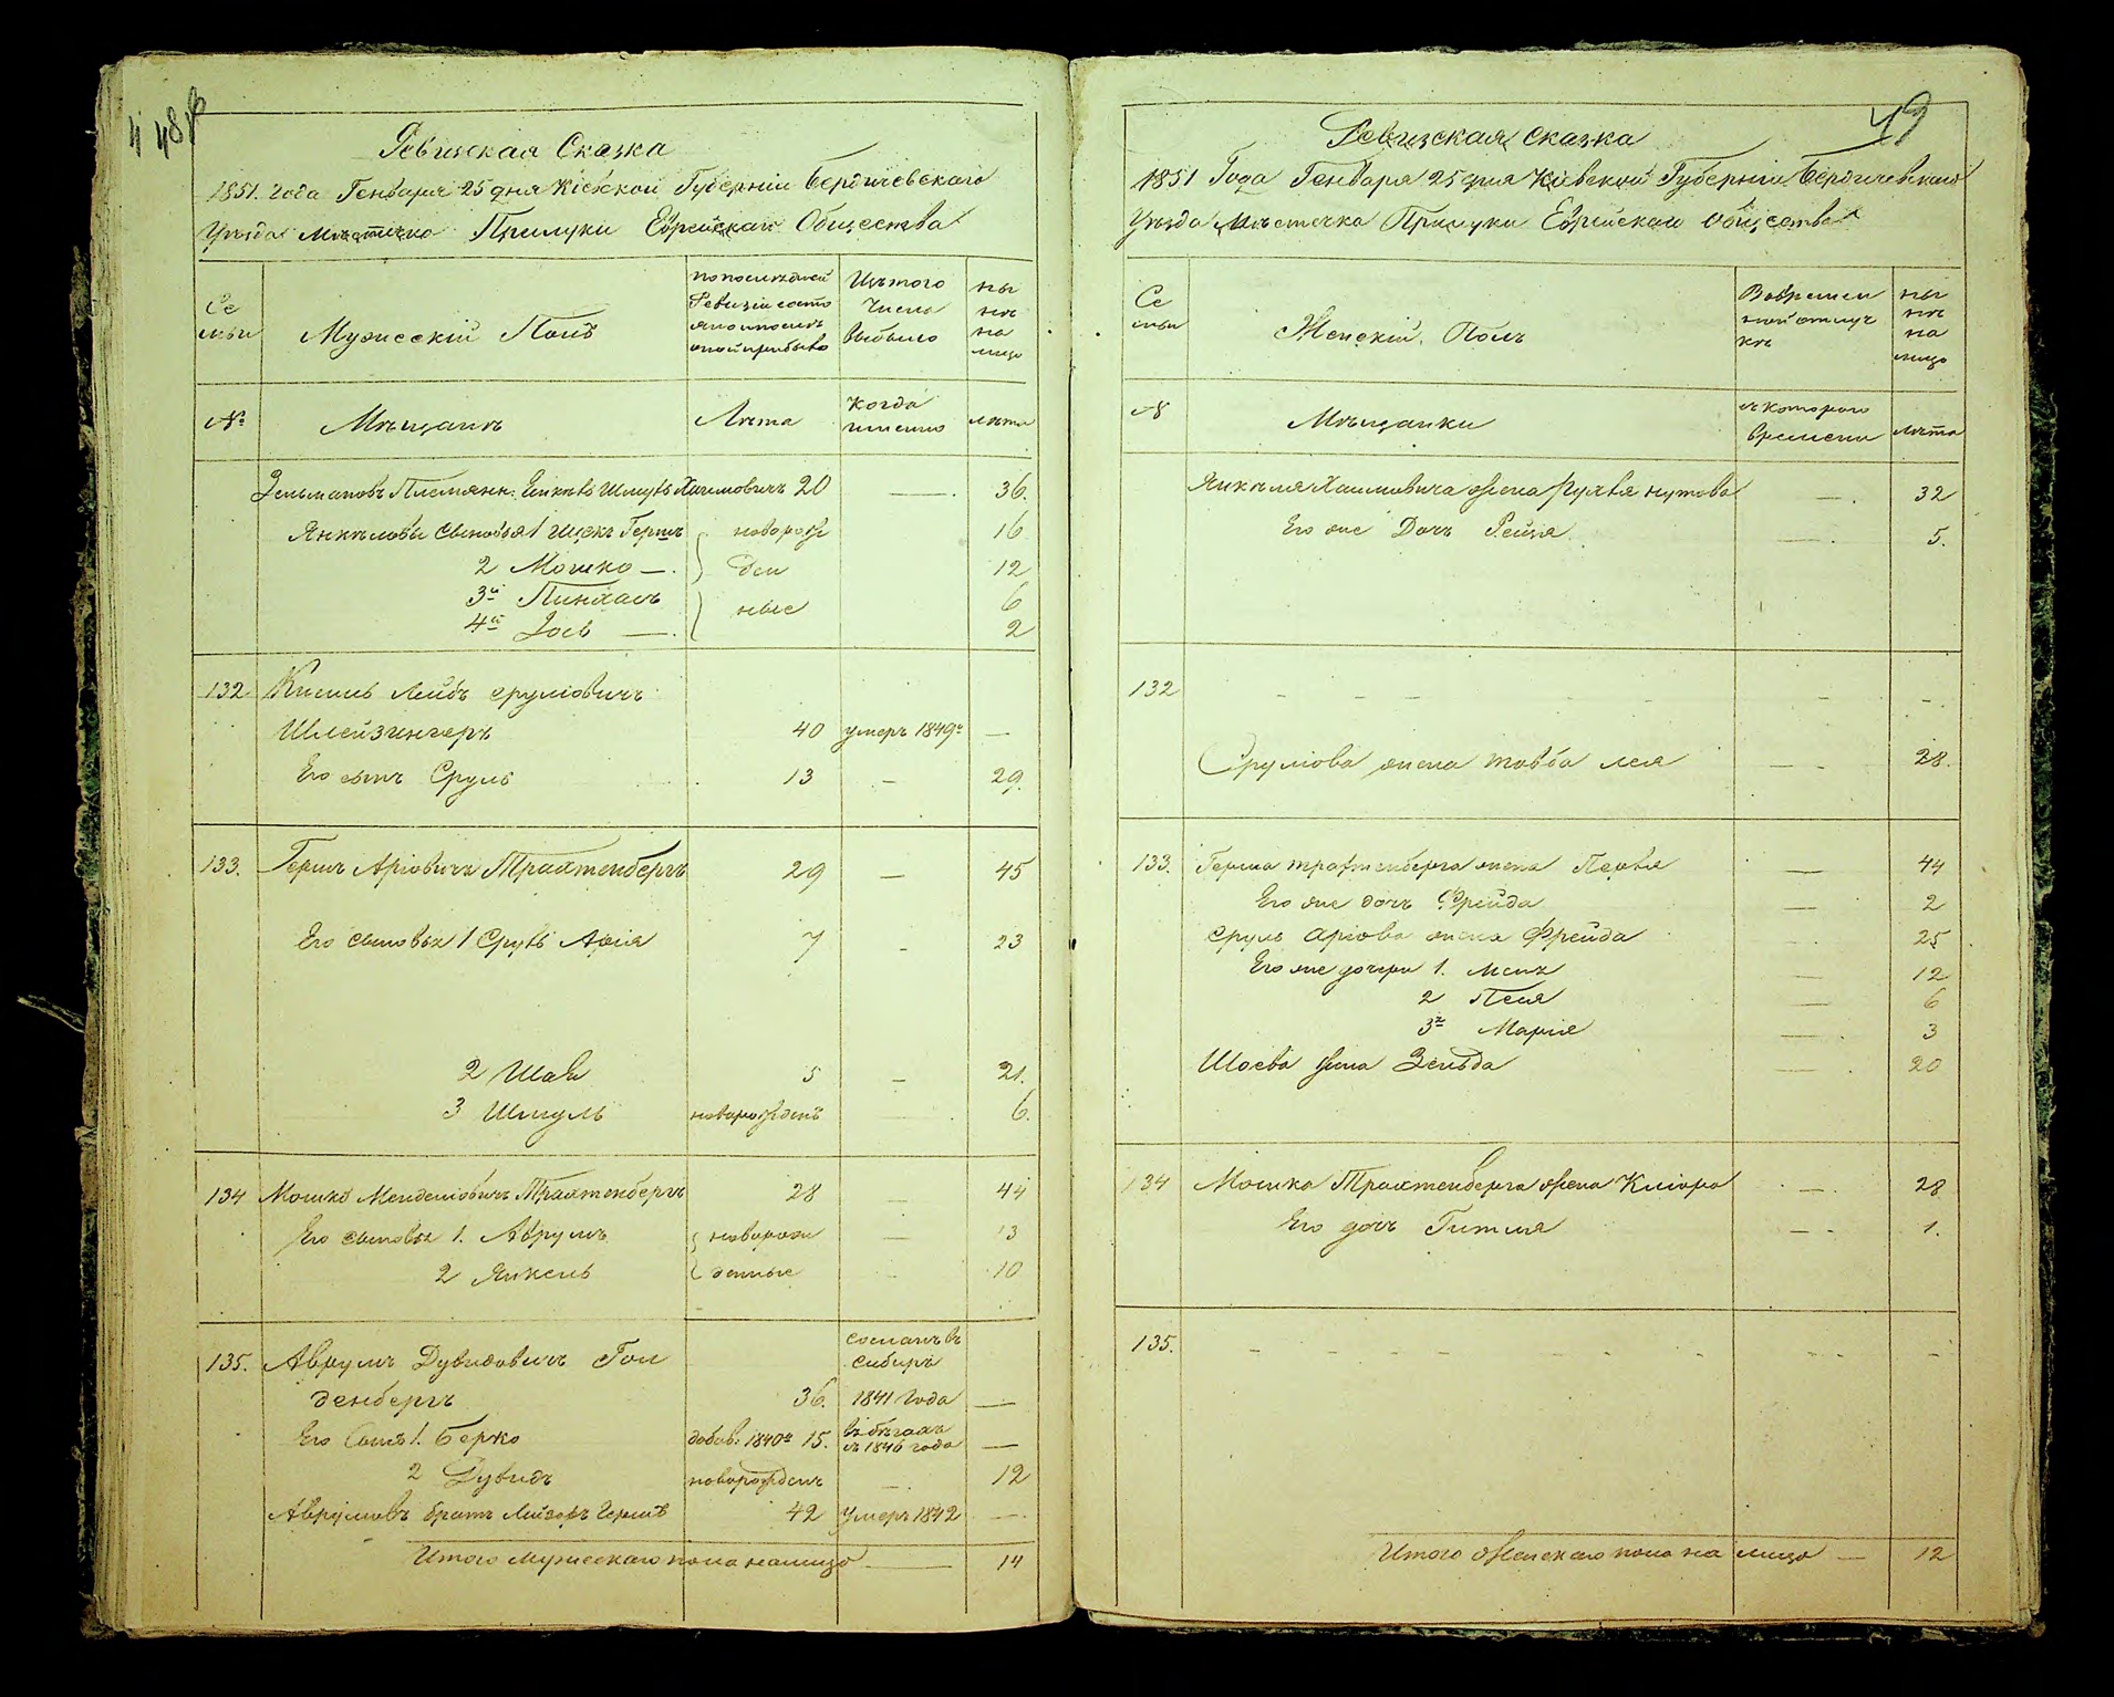 448
Ревизская Сказка
1851. Года Генваря 25 дня Кіевской Губерніи Бердичевскаго
Уѣзда Мѣстечка Прилуки Еврейскаго Общества
Се
мьи
Мужескій Полъ
По последней
Ревизіи состо
яло и послѣ
оной прибыло
Изъ того
Числа
выбыло
Ны
нѣ
на
лицо
№
Мѣщанъ
Лѣта
Когда
именно
лѣта
Зельмановъ Племянн: Янкель Шмуль Хаимовичъ 20 — 36.
Янкеловы сыновья 1 Ицекъ Гершъ новорож 16
2 Мошко — ден 12
3й Пинхасъ ные 6
4й Іось — 2
132 Кисиль Лейбъ Сруліовичъ
Шлейзингеръ 40 умеръ 1849г —
Его сынъ Сруль 13 — 29.
133. Гершъ Аріовичъ Трахтенбергъ 29 — 45
Его сыновья 1 Сруль Арія 7 - 23
2 Шая 5 — 21.
3 Шмуль новорожденъ 6.
134 Мошко Менделіовичъ Трахтенбергъ 28 — 44
Его сыновья 1. Аврумъ новорож — 13
2 Янкель денные 10
135. Аврумъ Дувидовичъ Гол сосланъ въ
Сибирь
денбергъ 36. 1841 Года —
Его Сынъ 1. Берко добав: 1840г 15. въ бѣгахъ
съ 1846 года —
2 Дувидъ новорожденъ — 12
Аврумовъ братъ Лейзоръ Гершъ 42 умеръ 1842 —
Итого Мужескаго пола налицо — 14
49
Ревизская Сказка
1851 Года Генваря 25 дня Кіевской Губерніи Бердичевскаго
Уѣзда Мѣстечка Прилуки Еврейскаго Общества
Се
мьи
Женскій Полъ
Во времен
ной отлуч
кѣ
ны
нѣ
на
лицо
№
Мѣщанки
съ котораго
времени
лѣта
Янкеля Хаимовича жена Рухля Нутова — 32
Его же Дочь Рейзя — 5.
132 - - - - -
Сруліова жена Товба Лея — 28.
133. Герша Трахтенберга жена Перля — 44
Его же дочь Фрейда — 2
Сруль Аріова жена Фрейда - 25
Его же дочери 1. — 12
2 Песя — 6
3я Марія — 3
Шоева жена Зельда — 20
134 Мошка Трахтенберга жена Кліора — 28
Его дочь Гитля — 1.
135. - - - - -
Итого Женскаго пола на лицо — 12